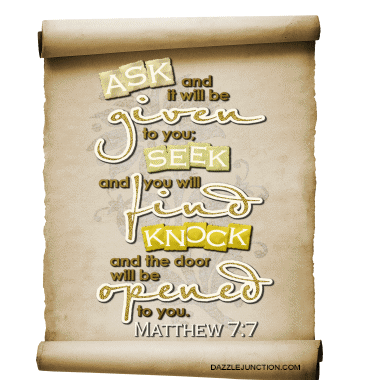 ASK and
it will be
given
to you;
SEEK
and you will
find
KNOCK
and the door
will be
opened
to you.
MATTHEW 7:7
DAZZLEJUNCTION.COM